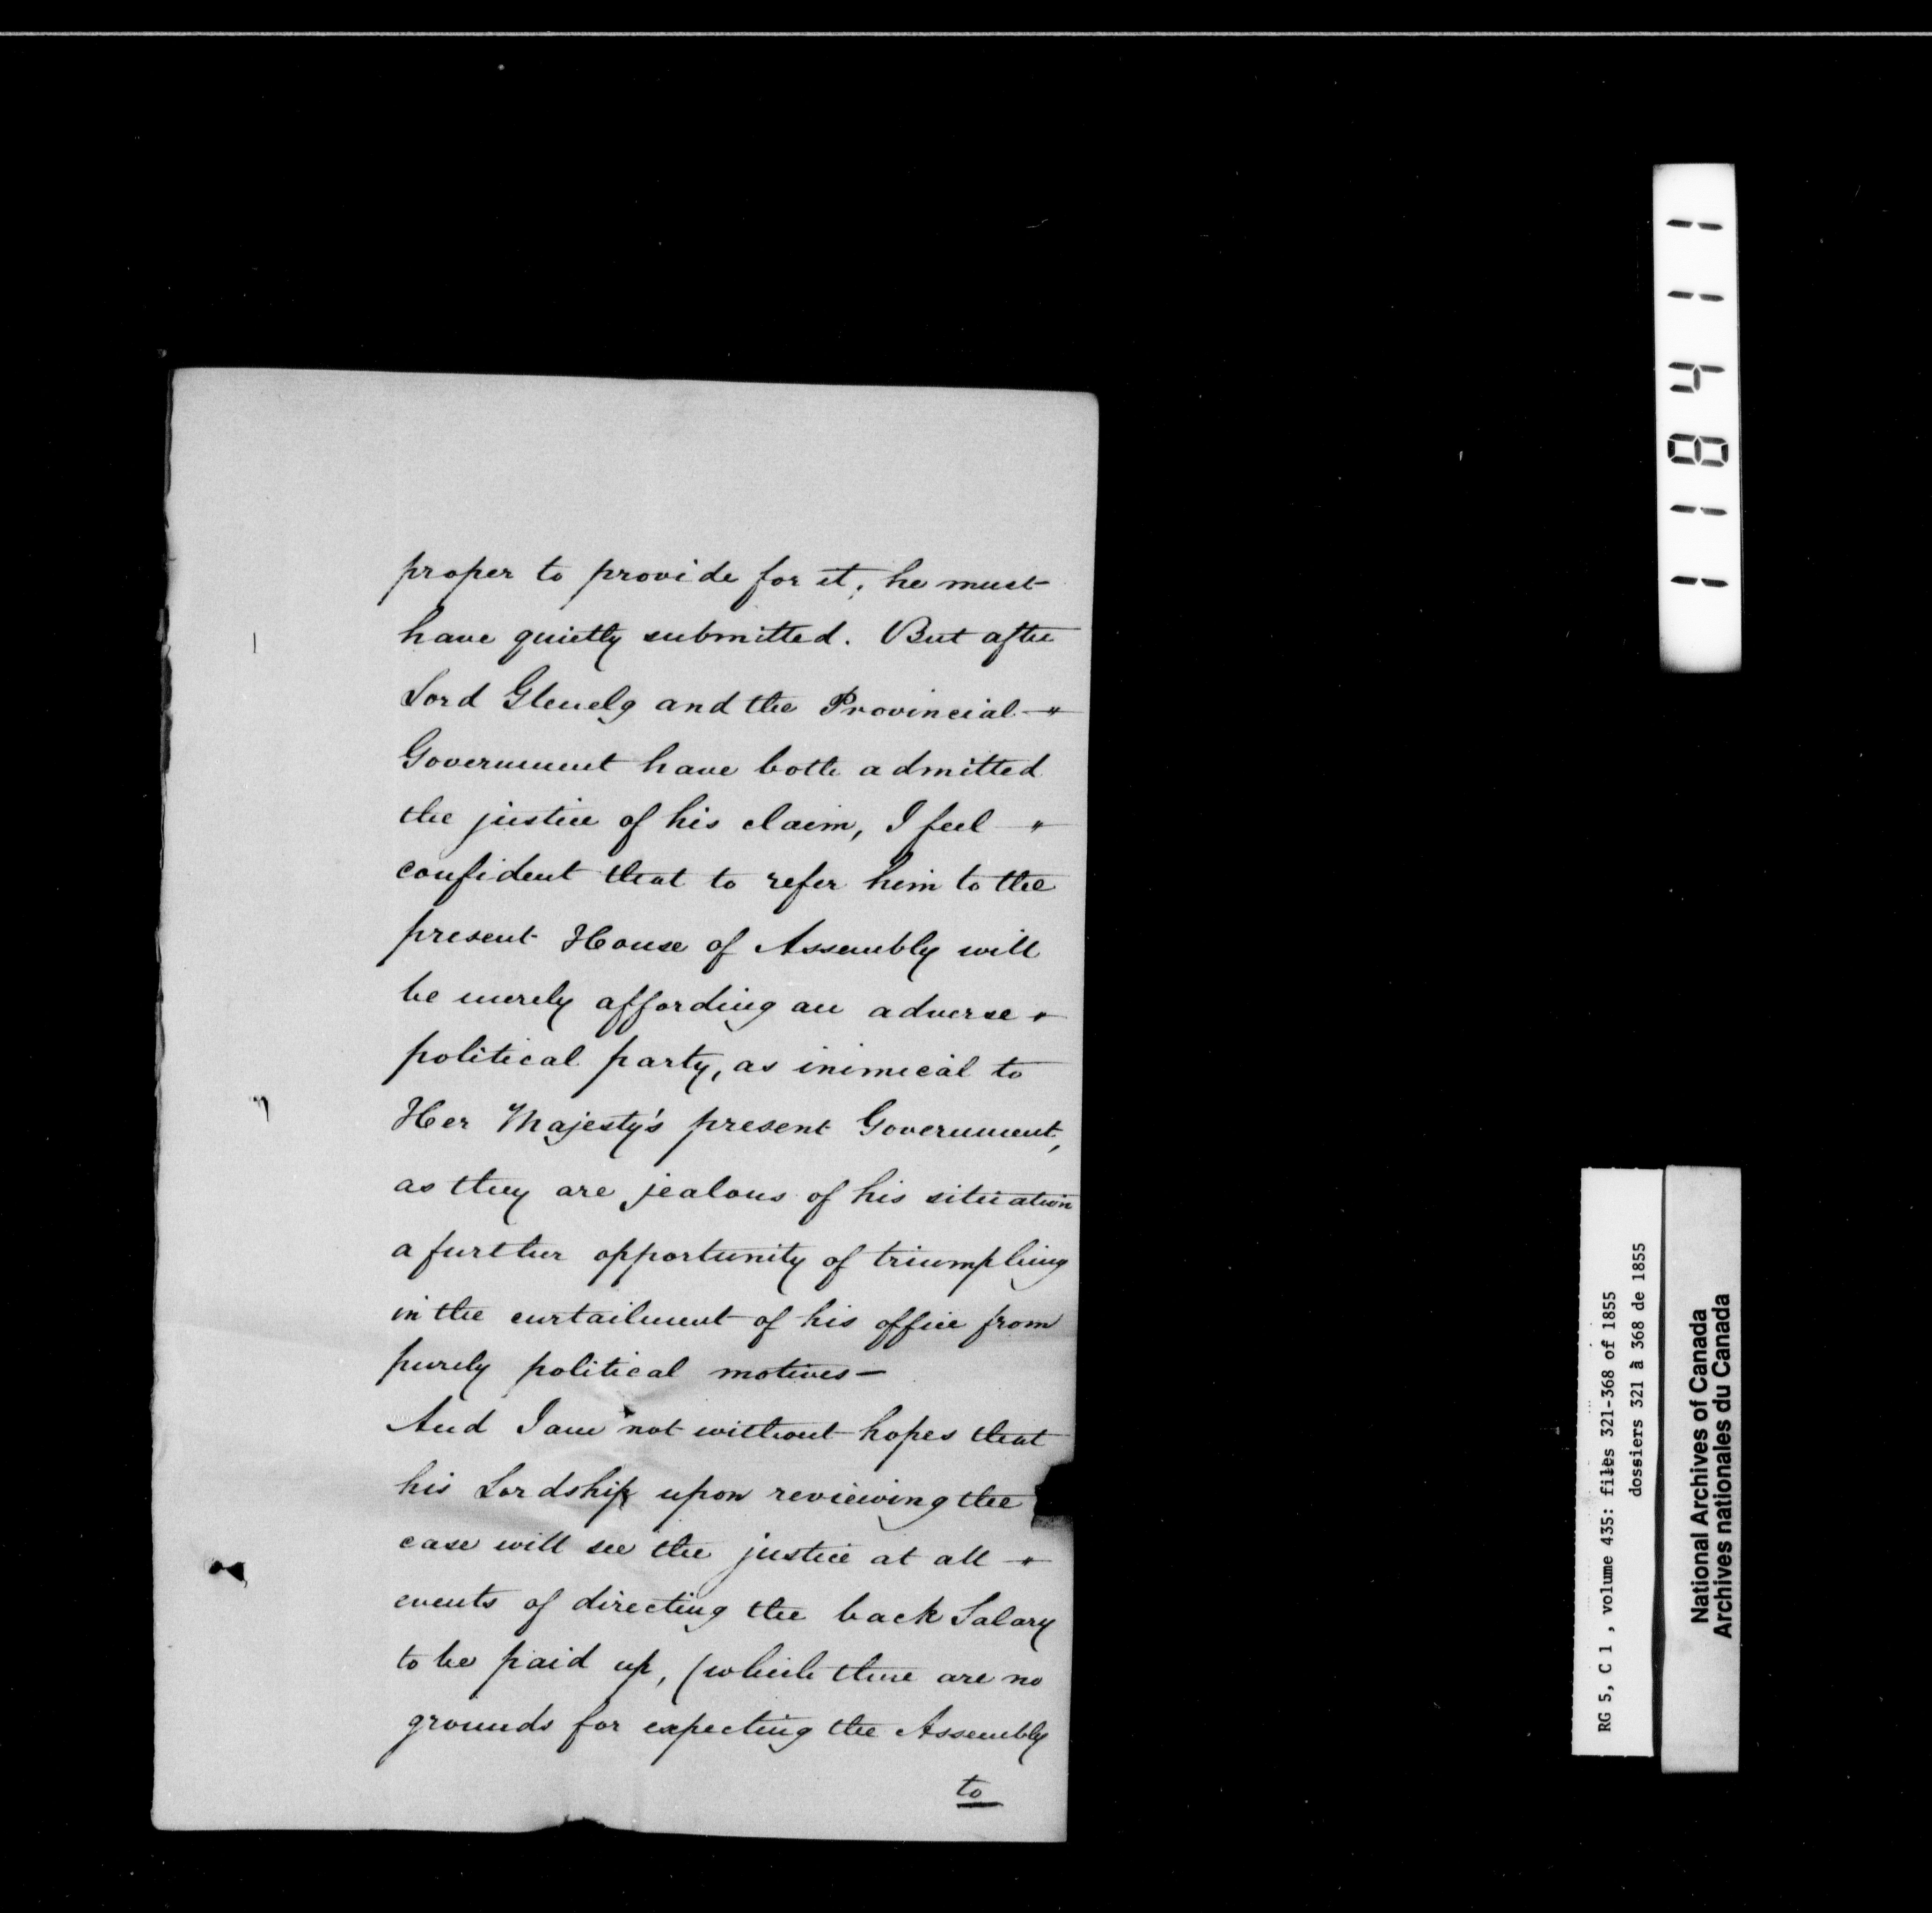 proper to provide for it, he must
have quietly submitted. But after
Lord Glenelg and the Provincial —"
Government have both admitted
the justice of his claim, I feel — "
confident that to refer him to the
present House of Assembly will
be merely affording an adverse "
political party, as inimical to
Her Majesty's present Government,
as they are jealous of his situation
a further opportunity of triumphing
in the curtailment of his office from
purely political motives —
And I am not without hopes that
his Lordship upon reviewing the
case will see the justice at all — "
events of directing the back Salary
to be paid up, (which there are no
grounds for expecting the Assembly
to
118411
RG 5, C 1 , volume 435: files 321-368 of 1855
dossiers 321 à 368 de 1855
National Archives of Canada
Archives nationales du Canada